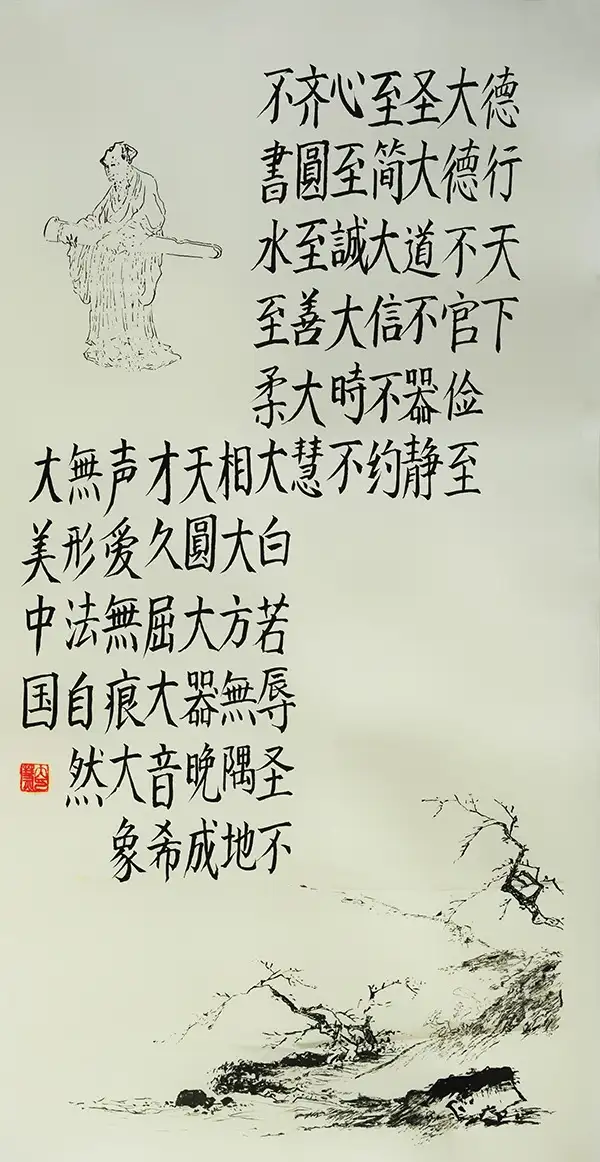 德行天下
大德不官俭至
圣大道不器静
至简大信不约
心至誠大時不
齐圓至善大慧
不書水至柔大白若辱圣不
相大方無隅地
天圓大器晚成
才久屈大音希
声爱無痕大象
無形法自然
大美中国